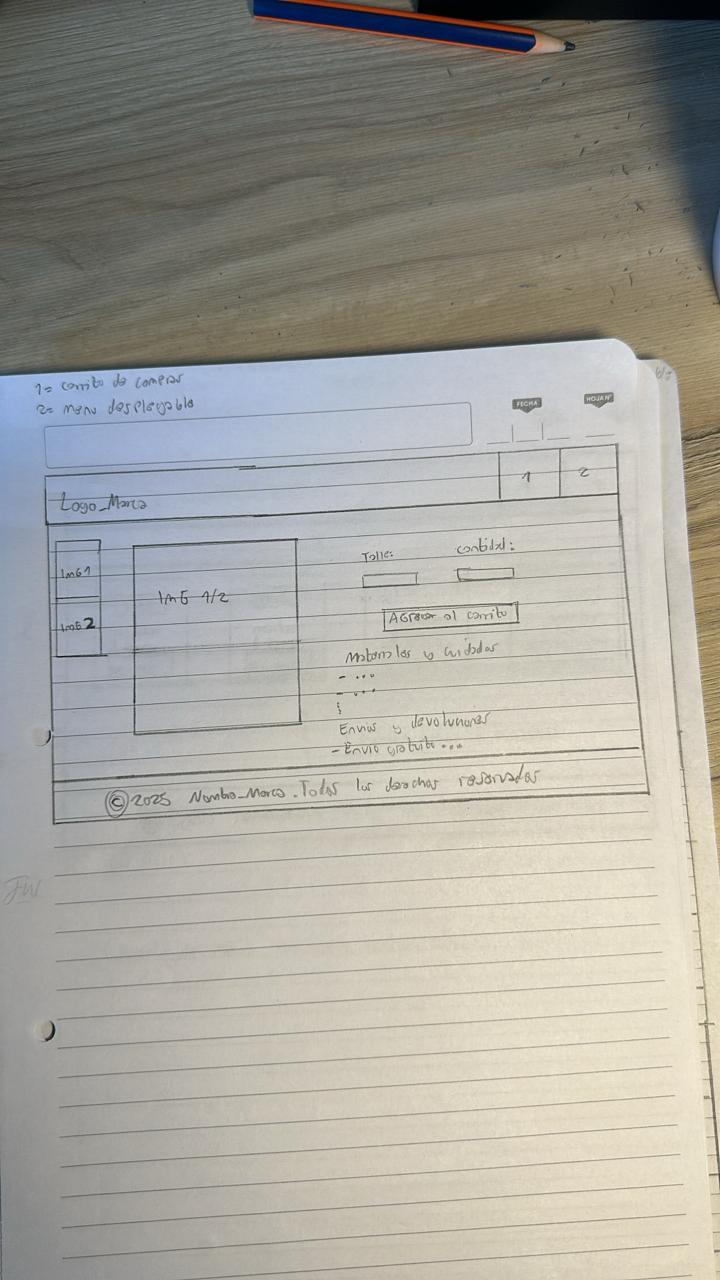 1= carrito de compras
2= menu desplegable
FECHA
HOJA Nº
Logo_Marca
1
2
Img 1
Img 2
ImG 1/2
Talle:
cantidad:
AGregar al carrito
Materiales y cuidados
- ...
- ...
Envios y devoluciones
- Envio gratuito ...
© 2025 Nombre_Marca. Todos los derechos reservados